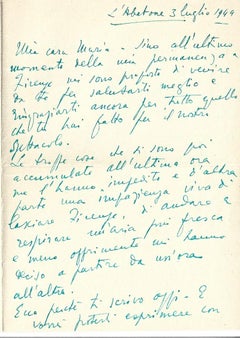 L'Abetone 3 luglio 1949
Mia cara Maria - Sino all'ultimo
momento della mia permanenza a
Firenze mi sono proposto di venire
da te per salutarti meglio e
ringraziarti ancora per tutto quello
che tu hai fatto per il nostro
spettacolo.
Le troppe cose che si sono poi
accumulate all'ultima ora
me l'hanno impedito e d'altra
parte una impazienza viva di
lasciare Firenze, di andare a
respirare un'aria più fresca
e meno opprimente mi hanno
deciso a partire da un'ora
all'altra.
Ecco perché ti scrivo oggi - E
vorrei poterti esprimere con